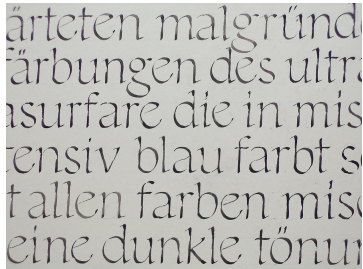 ärteten malgründe
färbungen des ultra
asurfare die in mis
tensiv blau farbt s
t allen farben misc
eine dunkle tönun